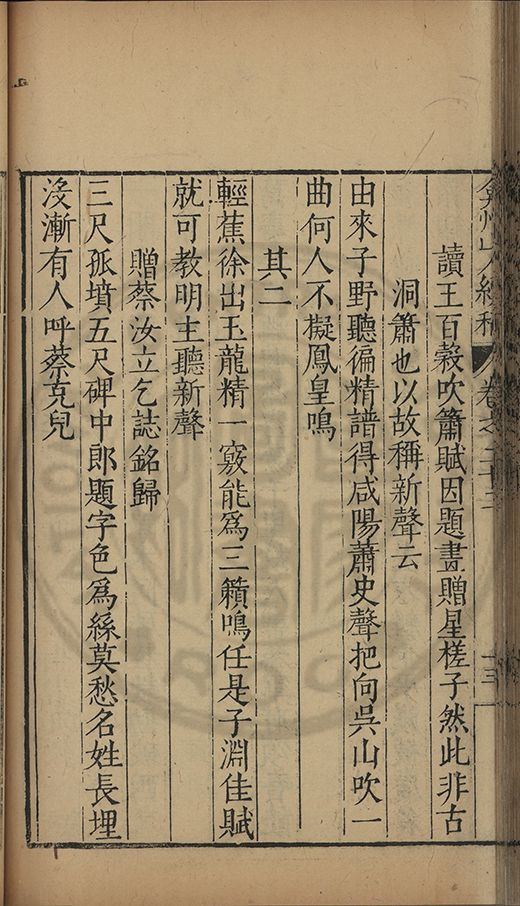 弇州山人續稿 卷之二十三 十三
讀王百穀吹簫賦因題畫贈星槎子然此非古
洞簫也以故稱新聲云
由來子野聽徧精譜得咸陽蕭史聲把向吳山吹一
曲何人不擬鳳皇鳴
其二
輕蕉徐出玉龍精一竅能爲三籟鳴任是子淵佳賦
就可教明主聽新聲
贈蔡汝立乞誌銘歸
三尺孤墳五尺碑中郎題字色爲絲莫愁名姓長埋
沒漸有人呼蔡克兒